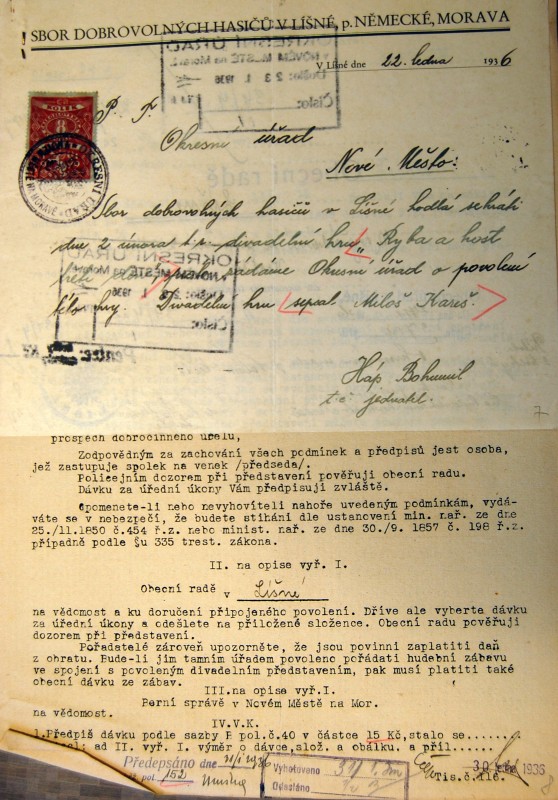 SBOR DOBROVOLNÝCH HASIČŮ V LÍŠNÉ, p. NĚMECKÉ, MORAVA
V Líšné dne 22. ledna 1936
P. T.
Okresní úřad
Nové Město:
Sbor dobrovolných hasičů v Líšné hodlá sehráti
dne 2 února t. r. divadelní hru „Ryba a host
žádáme Okresní úřad o povolení
této hry. Divadelní hru sepsal Miloš Kareš.
Háp Bohumil
t. č. jednatel.
7
OKRESNÍ ÚŘAD
v NOVÉM MĚSTĚ na Moravě
Došlo: 23 1. 1936
Číslo:
OKRESNÍ ÚŘAD
v NOVÉM MĚSTĚ na Moravě
Číslo:
prospěch dobročinného účelu,
Zodpovědným za zachování všech podmínek a předpisů jest osoba,
jež zastupuje spolek na venek /předseda/.
Policejním dozorem při představení pověřuji obecní radu.
Dávku za úřední úkony Vám předpisuji zvláště.
Opomenete-li nebo nevyhovíteli nahoře uvedeným podmínkám, vydá-
váte se v nebezpečí, že budete stíháni dle ustanovení min. nař. ze dne
25./11.1850 č.454 ř.z. nebo minist. nař. ze dne 30./9. 1857 č. 198 ř.z.
případně podle §u 335 trest. zákona.
II. na opise vyř. I.
Obecní radě v Líšné
na vědomost a ku doručení připojeného povolení. Dříve ale vyberte dávku
za úřední úkony a odešlete na přiložené složence. Obecní radu pověřuji
dozorem při představení.
Pořadatelé zároveň upozorněte, že jsou povinni zaplatiti daň
z obratu. Bude-li jim tamním úřadem povoleno pořádati hudební zábavu
ve spojení s povoleným divadelním představením, pak musí platiti také
obecní dávku ze zábav.
III.na opise vyř.I.
Berní správě v Novém Městě na Mor.
na vědomost.
IV.V.K.
1.Předpiš dávku podle sazby P pol.č.40 v částce 15 Kč,stalo se......
ad II. vyř. I výměr o dávce,slož. a obálku. a příl......
Předepsáno dne 31/1 1936
pol. 152
Vyhotoveno
Odesláno
30 1936
Tis.č.116.
8